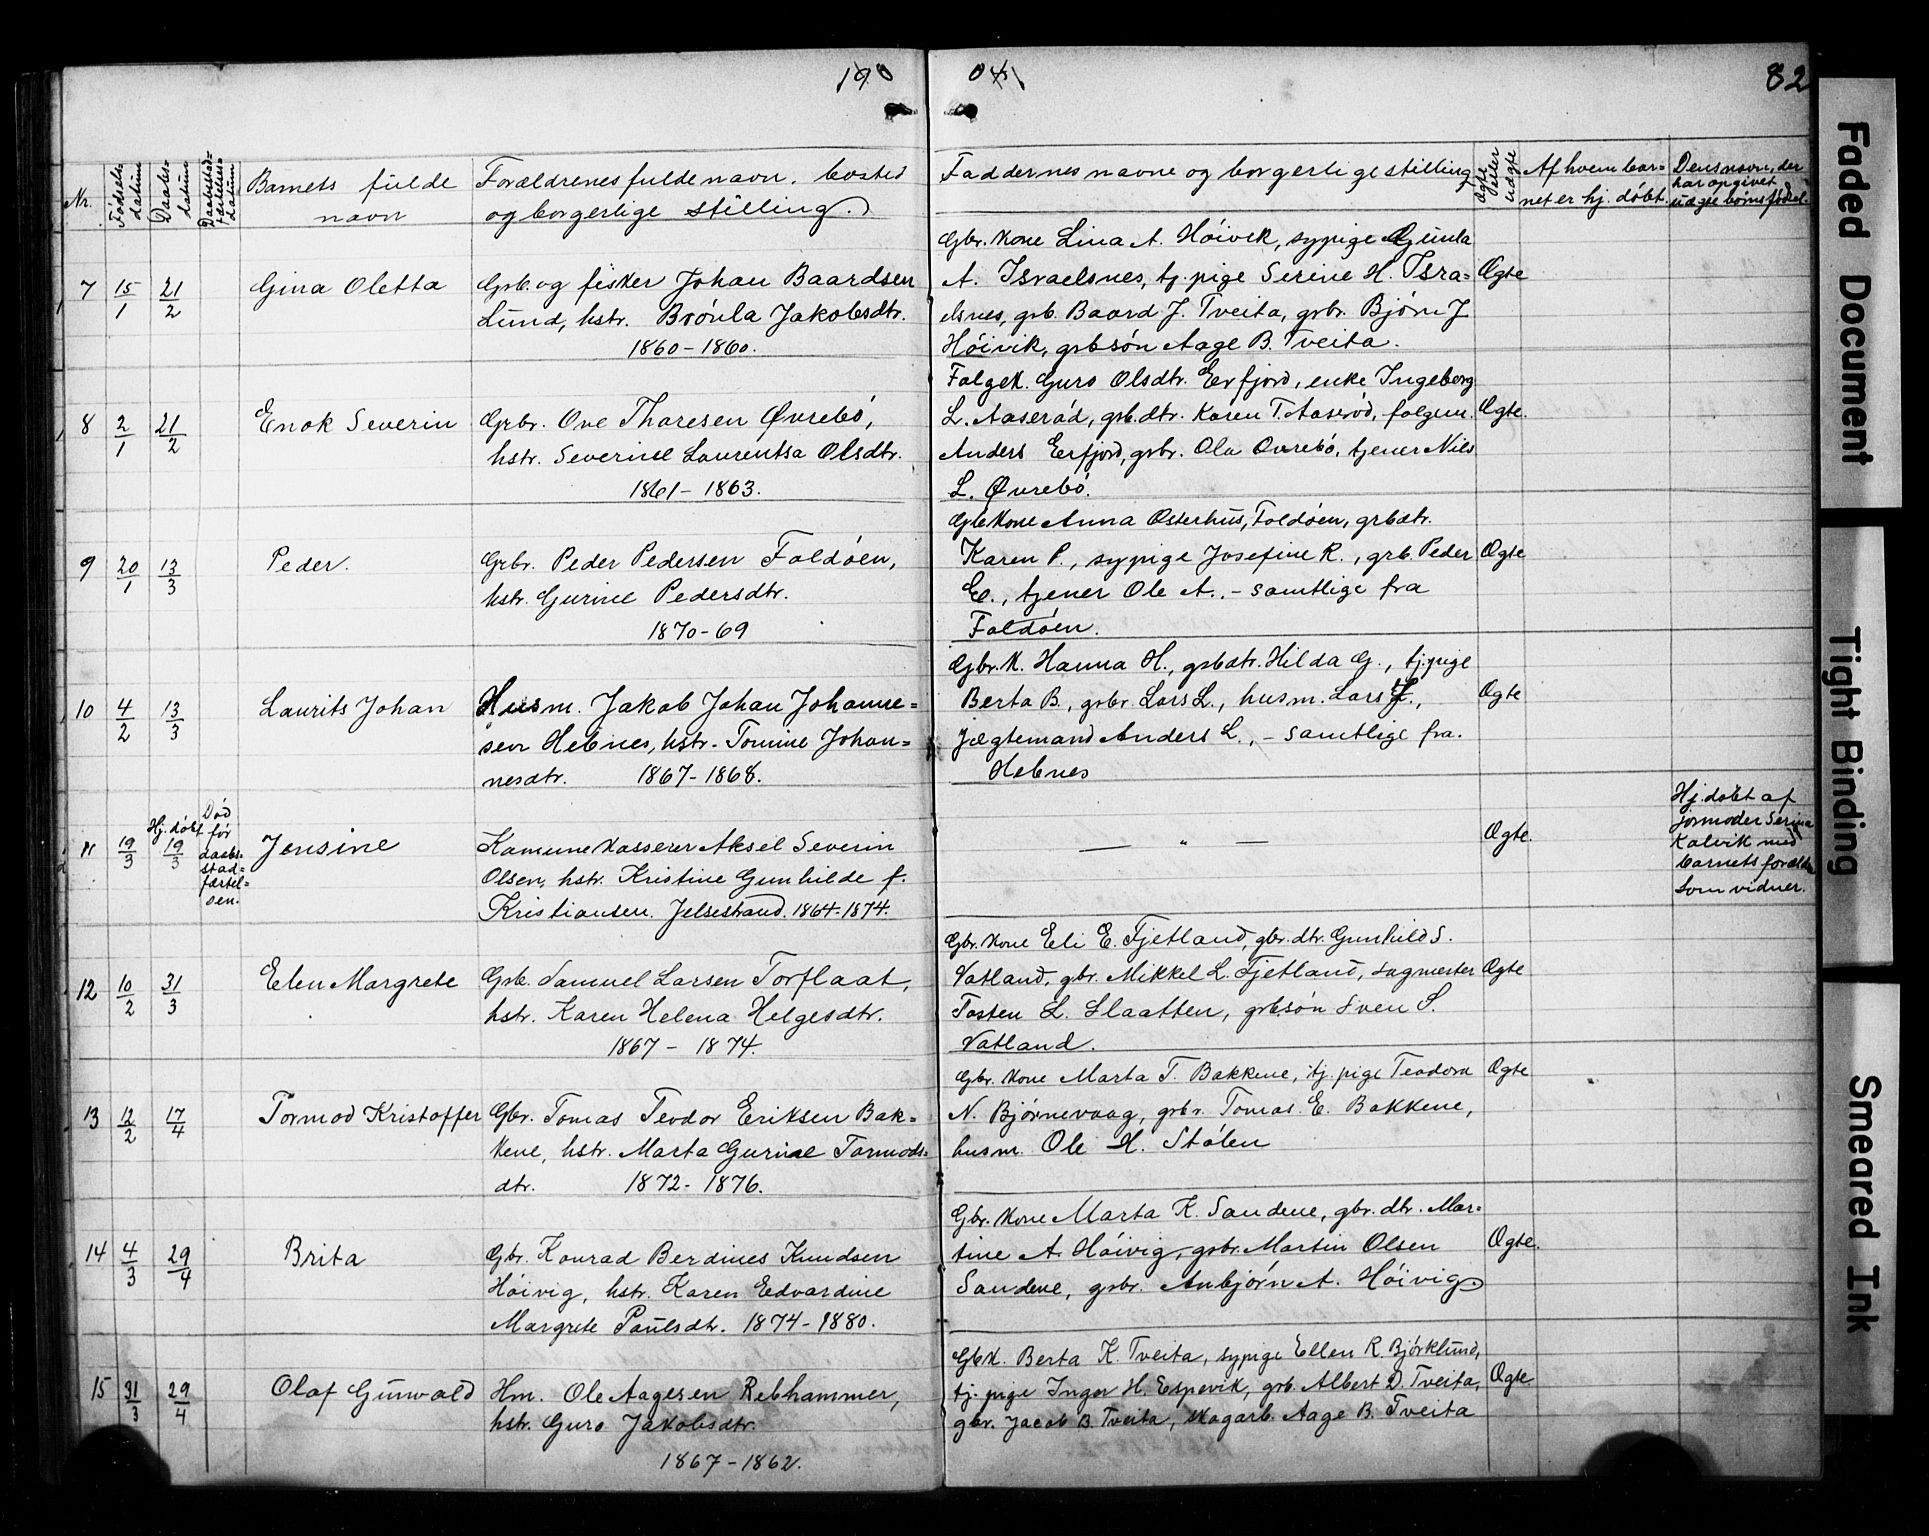 1904
82
Nr.
Fødsels-
datum
Daabs-
datum
Barnets fulde
navn
Forældrenes fulde navn, bosted
og borgerlige stilling.
Faddernes navne og borgerlige stilling
Ægte
eller
uægte
Af hvem bar-
net er hj. døbt.
Dens navn, der
har opgivet
uægte børns fødsel.
7 15/1 21/2 Gina Oletta
Grb. og fisker Johan Baardsen
Lund, hstr. Brónla Jakobsdtr.
1860-1860.
Gbr. kone Lina A. Hóivik, sypige Gunla
A. Israelsnes, tj. pige Serine H. Isra-
elsnes, grb. Baard J. Tveita, grbr. Bjórn J
Hóivik, grbsón Aage B. Tveita.
Ægte
8 2/1 21/2 Enok Severin
Grbr. Ove Tharesen Øvrebó,
hstr. Severine Laurentsa Olsdtr.
1861-1863.
Folgek. Guro Olsdtr. Erfjord, enke Ingeborg
L. Aaseród, grb. dtr. Karen T. Aaseród, folgem.
Anders Erfjord, grbr. Ola Ovrebó, tjener Nils
L. Øvrebó.
Ægte.
9 20/1 13/3 Peder.
Grbr. Peder Pedersen Foldóen,
hstr. Gurine Pedersdtr.
1870-69
Gbkone Anna Osterhus, Foldóen, grbdtr.
Karen P., sypige Josefine R., grb. Peder
E., tjener Ole A., - samtlige fra
Foldóen.
Ægte
10 4/2 13/3 Laurits Johan
Husm. Jakob Johan Johanne-
sen Hebnes, hstr. Tomine Johan-
nesdtr. 1867-1868.
Gbr. k. Hanna H., grbdtr. Hilda G., tj. pige
Berta B., grbr. Lars L., husm. Lars J.,
jægtemand Anders L., - samtlige fra.
Hebnes
Ægte
11 19/3 Hj. døbt 19/3
Død
før
daabs-
stad-
færtel-
sen.
Jensine
Kamunekasserer Aksel Severin
Olsen, hstr. Kristine Gunhilde f.
Kristiansen. Jelsestrand. 1864-1874.
— " —
Ægte.
Hj. døbt af
jormoder Serina
Kalvik med
barnets forældre
som vidner.
12 10/2 31/3 Elen Margrete
Grb. Samuel Larsen Torflaat,
hstr. Karen Helena Helgesdtr.
1867 - 1874.
Gbr. kone Eli E. Fjetland, gbr. dtr. Gunhild S.
Vatland, gbr. Mikkel L. Fjetland, sagmester
Tosten L. Slaatten, grbsón Sven S.
Vatland.
Ægte
13 12/2 17/4 Tormod Kristoffer
Gbr. Tomas Teodor Eriksen Bak-
kene, hstr. Marta Gurine Tormods-
dtr. 1872-1876.
Gbr. kone Marta T. Bakkene, tj. pige Teodora
N. Bjórnevaag, grbr. Tomas E. Bakkene,
husm. Ole H. Stólen
Ægte
14 4/3 29/4 Brita
Gbr. Konrad Berdines Knudsen
Hóivig, hstr. Karen Edvardine
Margrete Paulsdtr. 1874-1880.
Gbr. kone Marta K. Sandene, gbr. dtr. Mar-
tine A. Hóivig, grbr. Martin Olsen
Sandene, grbr. Anbjórn A. Hóivig.
Ægte.
15 31/3 29/4 Olaf Gunvald
Hm. Ole Aagesen Rebhammer,
hstr. Guro Jakobsdtr.
1867-1862.
Gbk. Berta K. Tveita, sypige Ellen R. Bjórklund,
tj. pige Inger H. Espevik, grb. Albert D. Tveita,
gbr. Jacob B. Tveita, skogarb. Aage B. Tveita
Ægte
Faded Document
Tight Binding
Smeared Ink